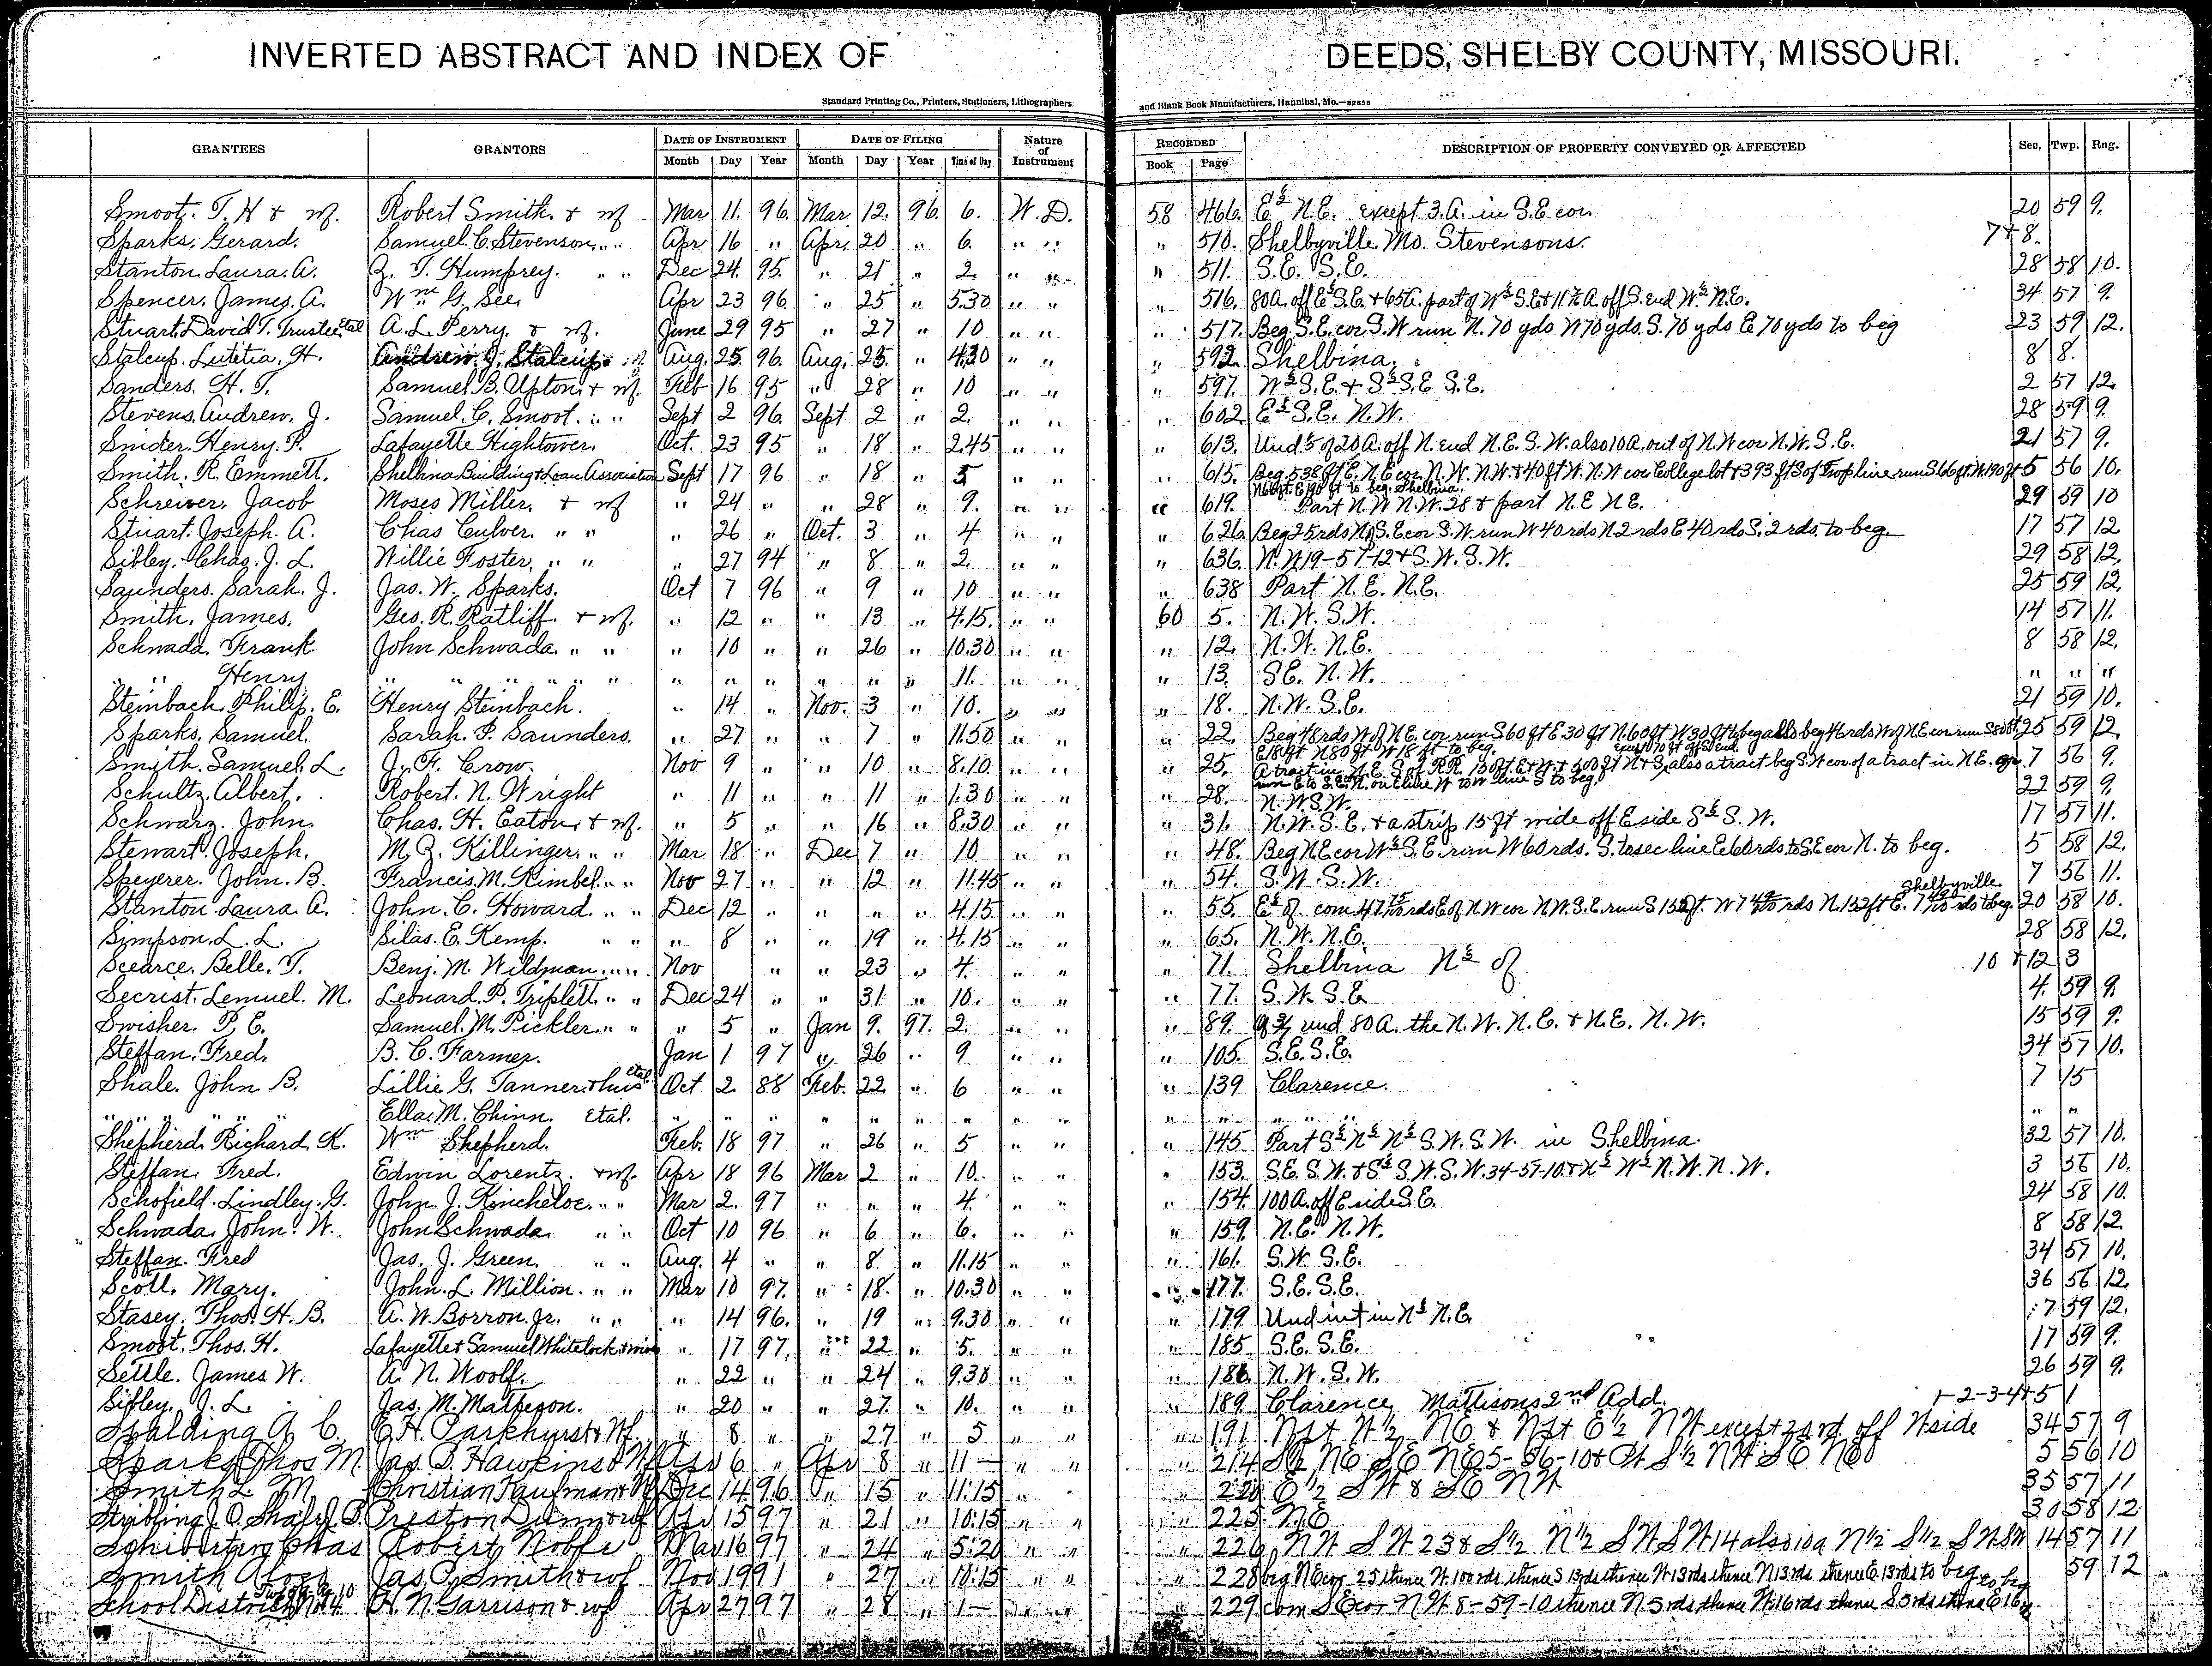 INVERTED ABSTRACT AND INDEX OF DEEDS, SHELBY COUNTY, MISSOURI.
Standard Printing Co., Printers, Stationers, Lithographers and Blank Book Manufacturers, Hannibal, Mo.
GRANTEES GRANTORS DATE OF INSTRUMENT DATE OF FILING Nature of Instrument RECORDED DESCRIPTION OF PROPERTY CONVEYED OR AFFECTED Sec. Twp. Rng.
Month Day Year Month Day Year Time of Day Book Page
Smoot. T. H & wf. Robert Smith. & wf Mar 11. 96. Mar 12. 96. 6. W. D. 58 466. E½ N.E. except 3.A. in S.E. cor. 20 59 9.
Sparks. Gerard. Samuel. C. Stevenson. " " Apr 16 " Apr. 20 " 6. " " " 510. Shelbyville. Mo. Stevensons. 7 & 8.
Stanton Laura. A. Z. T. Humphrey. " " Dec 24. 95. " 21 " 2. " " " 511. S.E. S.E. 28 58 10.
Spencer. James. A. Wm G. See. Apr 23 96 " 25 " 5.30 " " " 516. 80A. off E½ S.E. & 65A. part of W½ S.E. & 11½ A. off S. end W½ N.E. 34 57 9.
Stuart. David T. Trustee Etal A. L. Perry. & wf. June 29 95 " 27 " 10 " " " 517. Beg. S.E. cor. S.W run N. 70 yds W 70 yds. S. 70 yds E 70 yds to beg 23 59 12.
Stalcup. Lutetia. H. Andrew J. Stalcup Aug. 25. 96. Aug. 25. " 4.30 " " " 592. Shelbina. 8 8.
Sanders. H. T. Samuel. B. Upton. & wf. Feb 16 95 " 28 " 10 " " " 597. W½ S.E. & S½ S.E S.E. 2 57 12.
Stevens. Andrew. J. Samuel. C. Smoot. " " Sept 2 96. Sept 2 " 2. " " " 602 E½ S.E. N.W. 28 59 9.
Snider. Henry. P. Lafayette Hightower. Oct. 23 95 " 18 " 2.45 " " " 613. of 20 A. off N. end N.E. S.W. also 10 A. out of N.W cor N.W. S.E. 21 57 9.
Smith. R. Emmett. Shelbina Building & Loan Association Sept 17 96 " 18 " 5 " " " 615. Beg. 538 ft E. N.E cor. N.W. N.W. & 40 ft W. N.W cor College lot & 393 ft S of Twp line run S 5 56 10.
to beg. Shelbina.
Schriever. Jacob Moses Miller. & wf " 24 " " 28 " 9. " " " 619. Part N.W N.W. 28 & part N.E N.E. 29 59 10
Stuart. Joseph. A. Chas Culver. " " " 26 " Oct. 3 " 4 " " " 626. Beg 25 rds N of S.E cor S.W run W 40 rds N 2 rds E 40 rds S. 2 rds. to beg. 17 57 12
Sibley. Chas. J. L. Willie Foster. " " " 27 94 " 8 " 2. " " " 636. N.W 19-57-12 & S.W. S.W. 29 58 12.
Saunders. Sarah. J. Jas. W. Sparks. Oct 7 96 " 9 " 10 " " " 638 Part N.E. N.E. 25 59 12.
Smith. James. Geo. R. Ratliff. & wf. " 12 " " 13 " 4.15. " " 60 5. N.W. S.W. 14 57 11.
Schwada. Frank. John Schwada. " " " 10 " " 26 " 10.30 " " " 12. N.W. N.E. 8 58 12.
" " Henry " " " " " " " " " " " " 11. " " " 13. S.E. N.W. " " "
Steinbach. Philip. E. Henry Steinbach. " 14 " Nov. 3 " 10. " " " 18. N.W. S.E. 21 59 10.
Sparks. Samuel. Sarah. P. Saunders. " 27 " " 7 " 11.50 " " " 22. Beg 48 rds W of N.E. cor run S 60 ft E. 30 ft N. 60 ft W 30 ft to beg also beg 46 rds W of N.E cor run S 80 ft 25 59 12.
E 18 ft N 80 ft W 18 ft to beg. except 70 ft off S end
Smith. Samuel. L. J. F. Crow. Nov 9 " " 10 " 8.10 " " " 25. A tract in N.E. S. of R.R. 150 ft E & W. & 500 ft N & S. also a tract beg S.W cor of a tract in N.E. 7 56 9.
to S.E. N. on E line W to W line S to beg.
Schultz. Albert. Robert. N. Wright " 11 " " 11 " 1.30 " " " 28. N.W S.W. 22 59 9.
Schwarz. John. Chas. H. Eaton. & wf. " 5 " " 16 " 8.30 " " " 31. N.W. S.E. & a strip 15 ft wide off E side S½ S.W. 17 57 11.
Stewart. Joseph. M. Z. Killinger. " " Mar 18 " Dec 7 " 10 " " " 48. Beg N.E cor W½ S.E. run W 60 rds. S. to sec line E 60 rds to S.E cor N. to beg. 5 58 12.
Speyerer. John. B. Francis. M. Kimbel. " " Nov 27 " " 12 " 11.45 " " " 54. S.W. S.W. 7 56 11.
Stanton. Laura. A. John. C. Howard. " " Dec 12 " " " " 4.15 " " " 55. E½ of com 47 rds E of N.W cor N.W. S.E. run S 152 ft. W 7 rds N. 152 ft E. 7 rds to beg. Shelbyville. 20 58 10.
Simpson. L. L. Silas. E. Kemp. " " " 8 " " 19 " 4.15 " " " 65. N.W. N.E. 28 58 12.
Scearce. Belle. T. Benj. M. Wildman. " " Nov " " 23 " 4. " " " 71. Shelbina N½ of 10 & 12 3
Secrist. Lemuel. M. Leonard. P. Triplett. " " Dec 24 " " 31. " 10. " " " 77. S.W. S.E. 4. 59 9.
Swisher. P. E. Samuel. M. Pickler. " " " 5 " Jan 9. 97. 2. " " " 89. und 80 A. the N.W. N.E. & N.E. N.W. 15 59 9.
Steffan. Fred. B. C. Farmer. Jan 1 97 " 26 " 9 " " " 105. S.E. S.E. 34 57 10.
Shale. John B. Lillie G. Tanner & hus Etal Oct 2. 88 Feb. 22 " 6 " " " 139 Clarence. 7 15
" " " " Ella. M. Chinn. Etal. " " " " " " " " " " " " " "
Shepherd. Richard. K. Wm Shepherd. Feb. 18 97 " 26 " 5 " " " 145 Part S½ N½ N½ S.W. S.W. in Shelbina. 32 57 10.
Steffan. Fred. Edwin Lorentz. & wf. Apr 18 96 Mar 2 " 10. " " " 153. S.E. S.W. & S½ S.W. S.W. 34-57-10. & N½ W½ N.W. N.W. 3 56 10.
Schofield. Lindley. G. John. J. Kincheloe. " " Mar 2. 97 " " " 4. " " " 154. 100 A. off E side S.E. 24 58 10.
Schwada. John. W. John Schwada. " " Oct 10 96 " 6 " 6. " " " 159. N.E. N.W. 8 58 12.
Steffan. Fred Jas. J. Green. " " Aug. 4 " " 8. " 11.15 " " " 161. S.W. S.E. 34 57 10.
Scott. Mary. John. L. Million. " " Mar 10 97. " 18. " 10.30 " " " 177. S.E. S.E. 36 56 12.
Stasey. Thos. H. B. A. W. Borron. Jr. " " " 14 96. " 19 " 9.30 " " " 179 Und int in N½ N.E. 7 59 12.
Smoot. Thos. H. Lafayette & Samuel Whitelock & wives " 17 97. " 22 " 5. " " " 185 S.E. S.E. 17 59 9.
Settle. James W. A. N. Woolf. " 22 " " 24 " 9.30 " " " 186. N.W. S.W. 26 59 9.
Sibley. J. L. Jas. M. Matteson. " 20 " " 27. " 10. " " " 189. Clarence Mattisons 2nd Add. 1-2-3-4 & 5 1
Spalding A C. E. H. Parkhurst & Wf. " 8 " " 27 " 5 " " " 191 Npt W ½ NE & Npt E ½ NW except off W side 34 57 9
Sparks Thos M. Jas. S. Hawkins & Wf Apr 6 " Apr 8 " 11 — " " " 214 S½ NE SE NE 5-56-10 & Pt S½ NW SE 5 56 10
Smith L M Christian Kaufman & Dec 14 96 " 15 " 11.15 " " 220 E ½ SW & SE NW 35 57 11
Stribling J. O. Preston Dunn & wf Apr 15 97 " 21 " 10.15 " " " 225 NE 30 58 12
Chas Robert Noble Mar 16 97 " 24 " 5:20 " " " 226 NW SW 23 & S½ N½ SW SW 14 also 10a N½ S½ SW SW 14 57 11
Smith Jas. P. Smith & wf Nov 19 91 " 27 " 10.15 " " " 228 beg NE cor 25 thence W. 100 rds thence S 13 rds thence W 13 rds thence N 13 rds thence E. 13 rds to beg 59 12
School District H. N Garrison & wf Apr 27 97 " 28 " 1 — " " " 229 com SE cor NW 8-59-10 thence N 5 rds thence W. 16 rds thence S 5 rds thence E 16